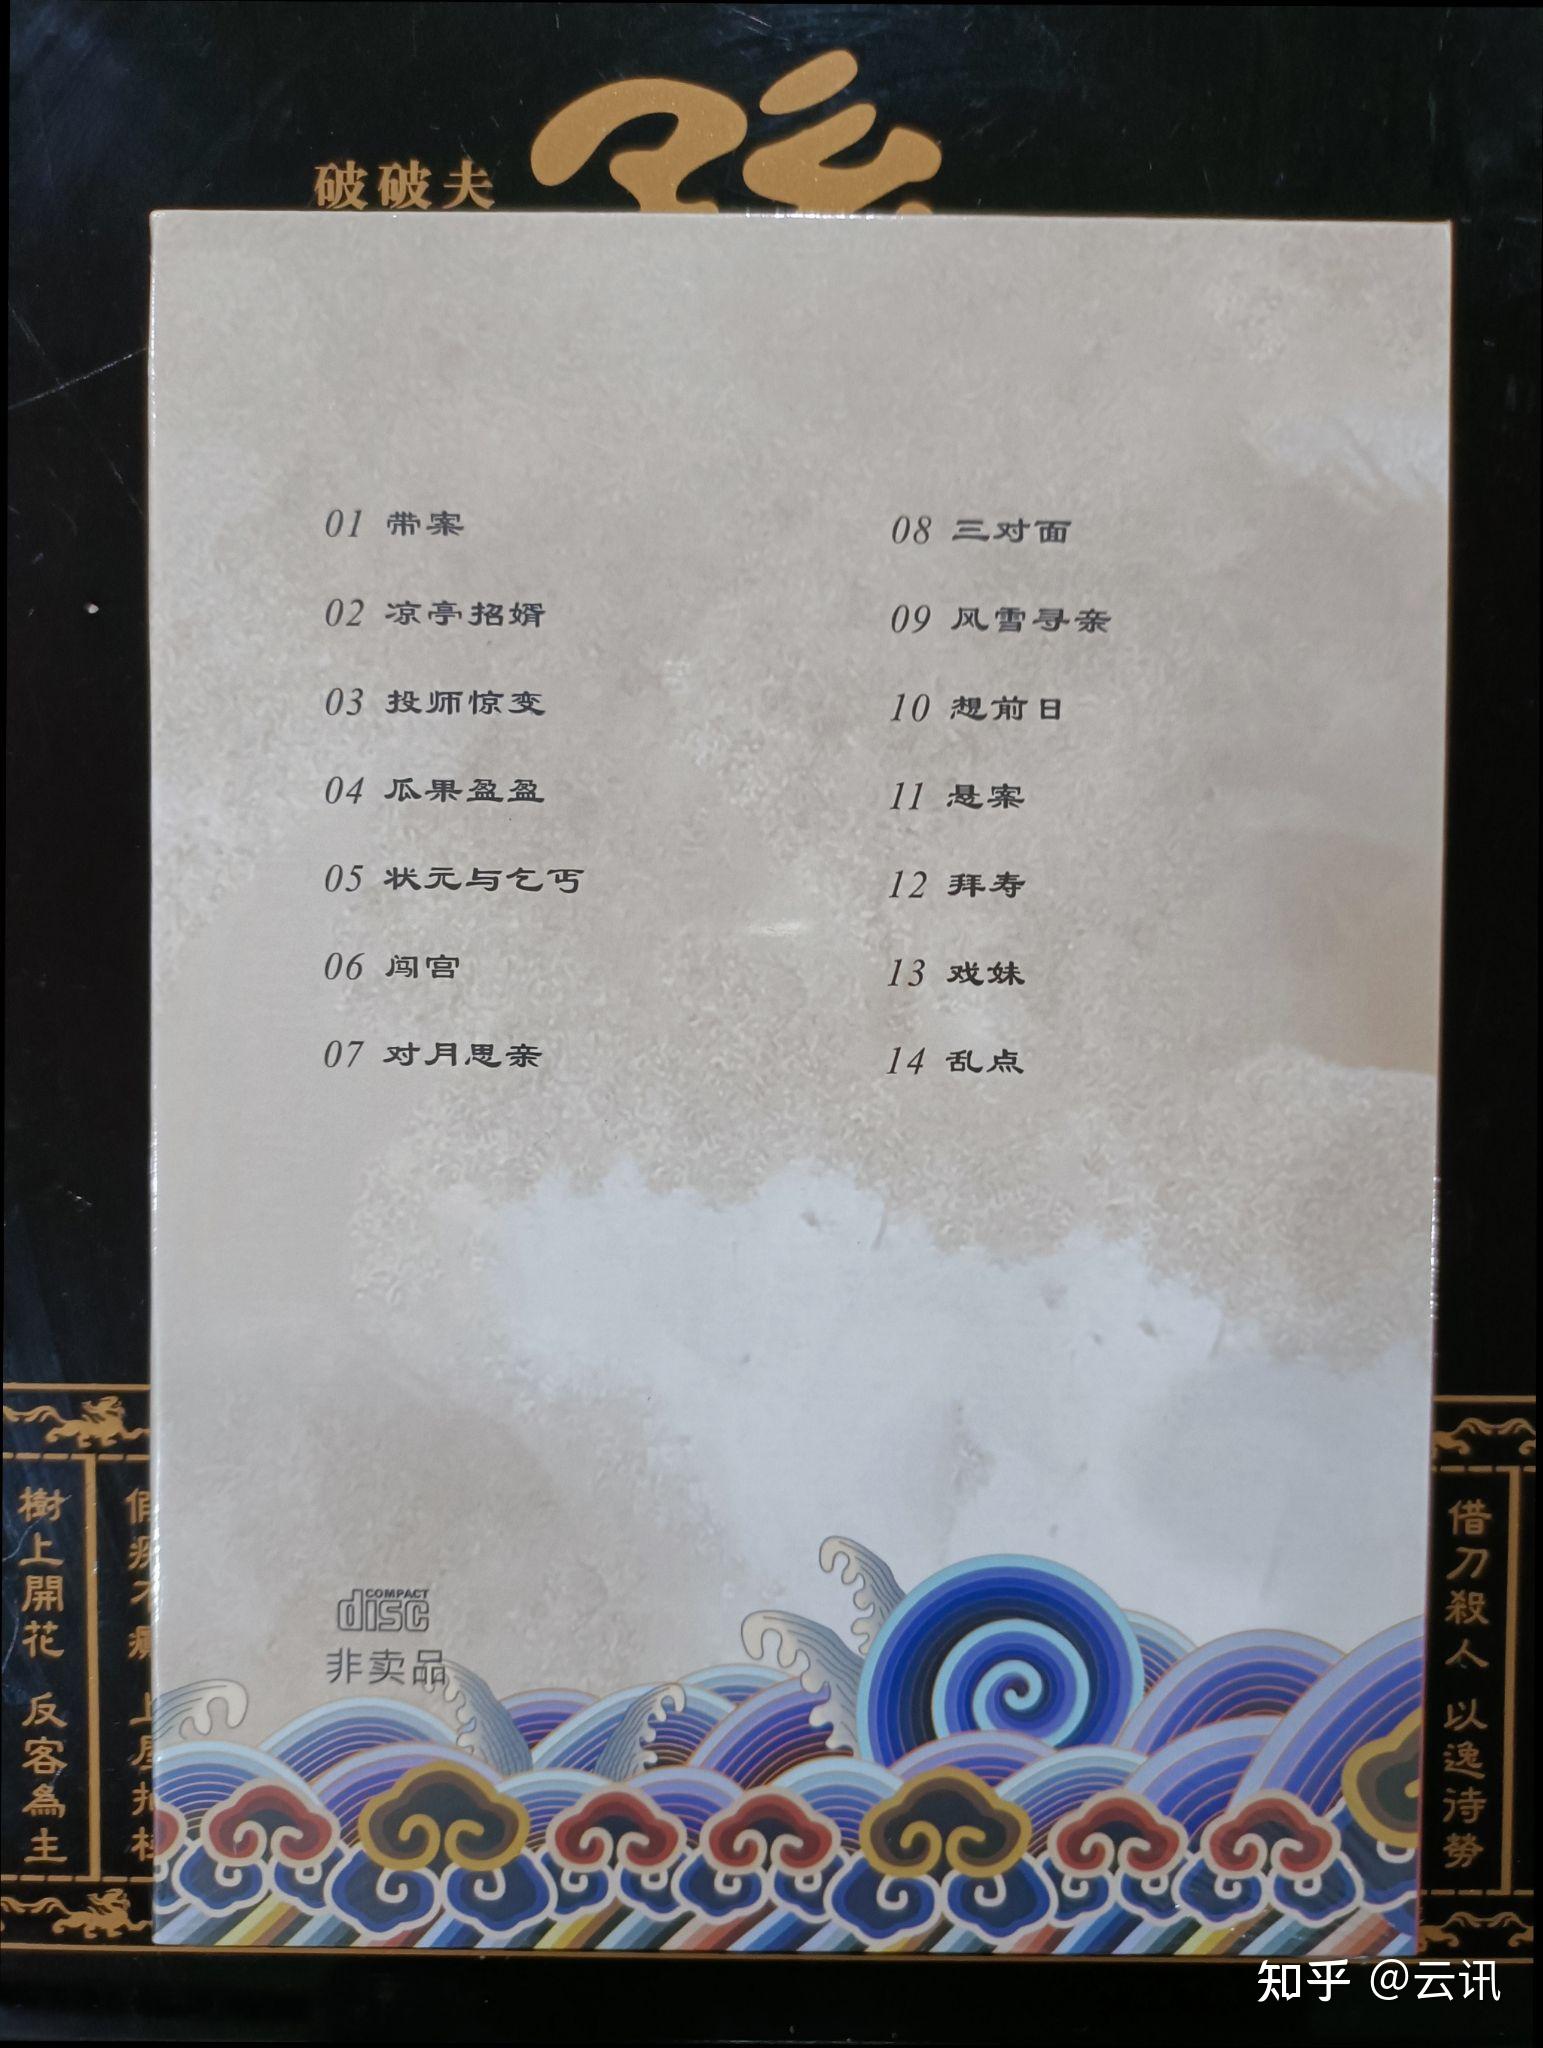 破破夫
01 带案
02 凉亭招婿
03 投师惊变
04 瓜果盈盈
05 状元与乞丐
06 闯宫
07 对月思亲
08 三对面
09 风雪寻亲
10 想前日
11 悬案
12 拜寿
13 戏妹
14 乱点
樹上開花 反客為主
借刀殺人 以逸待勞
COMPACT
disc
非卖品
知乎 @云讯